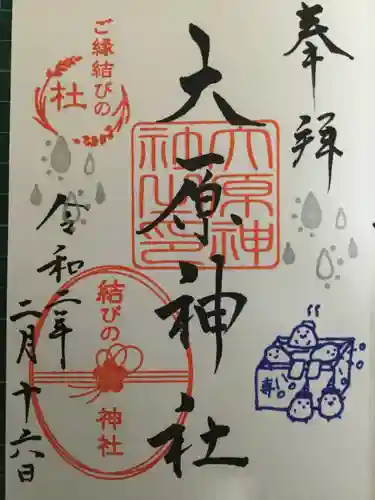 奉拝
大原神社
大原神
社之印
ご縁結びの
杜
令和二年
二月十六日
結びの
神社
寿